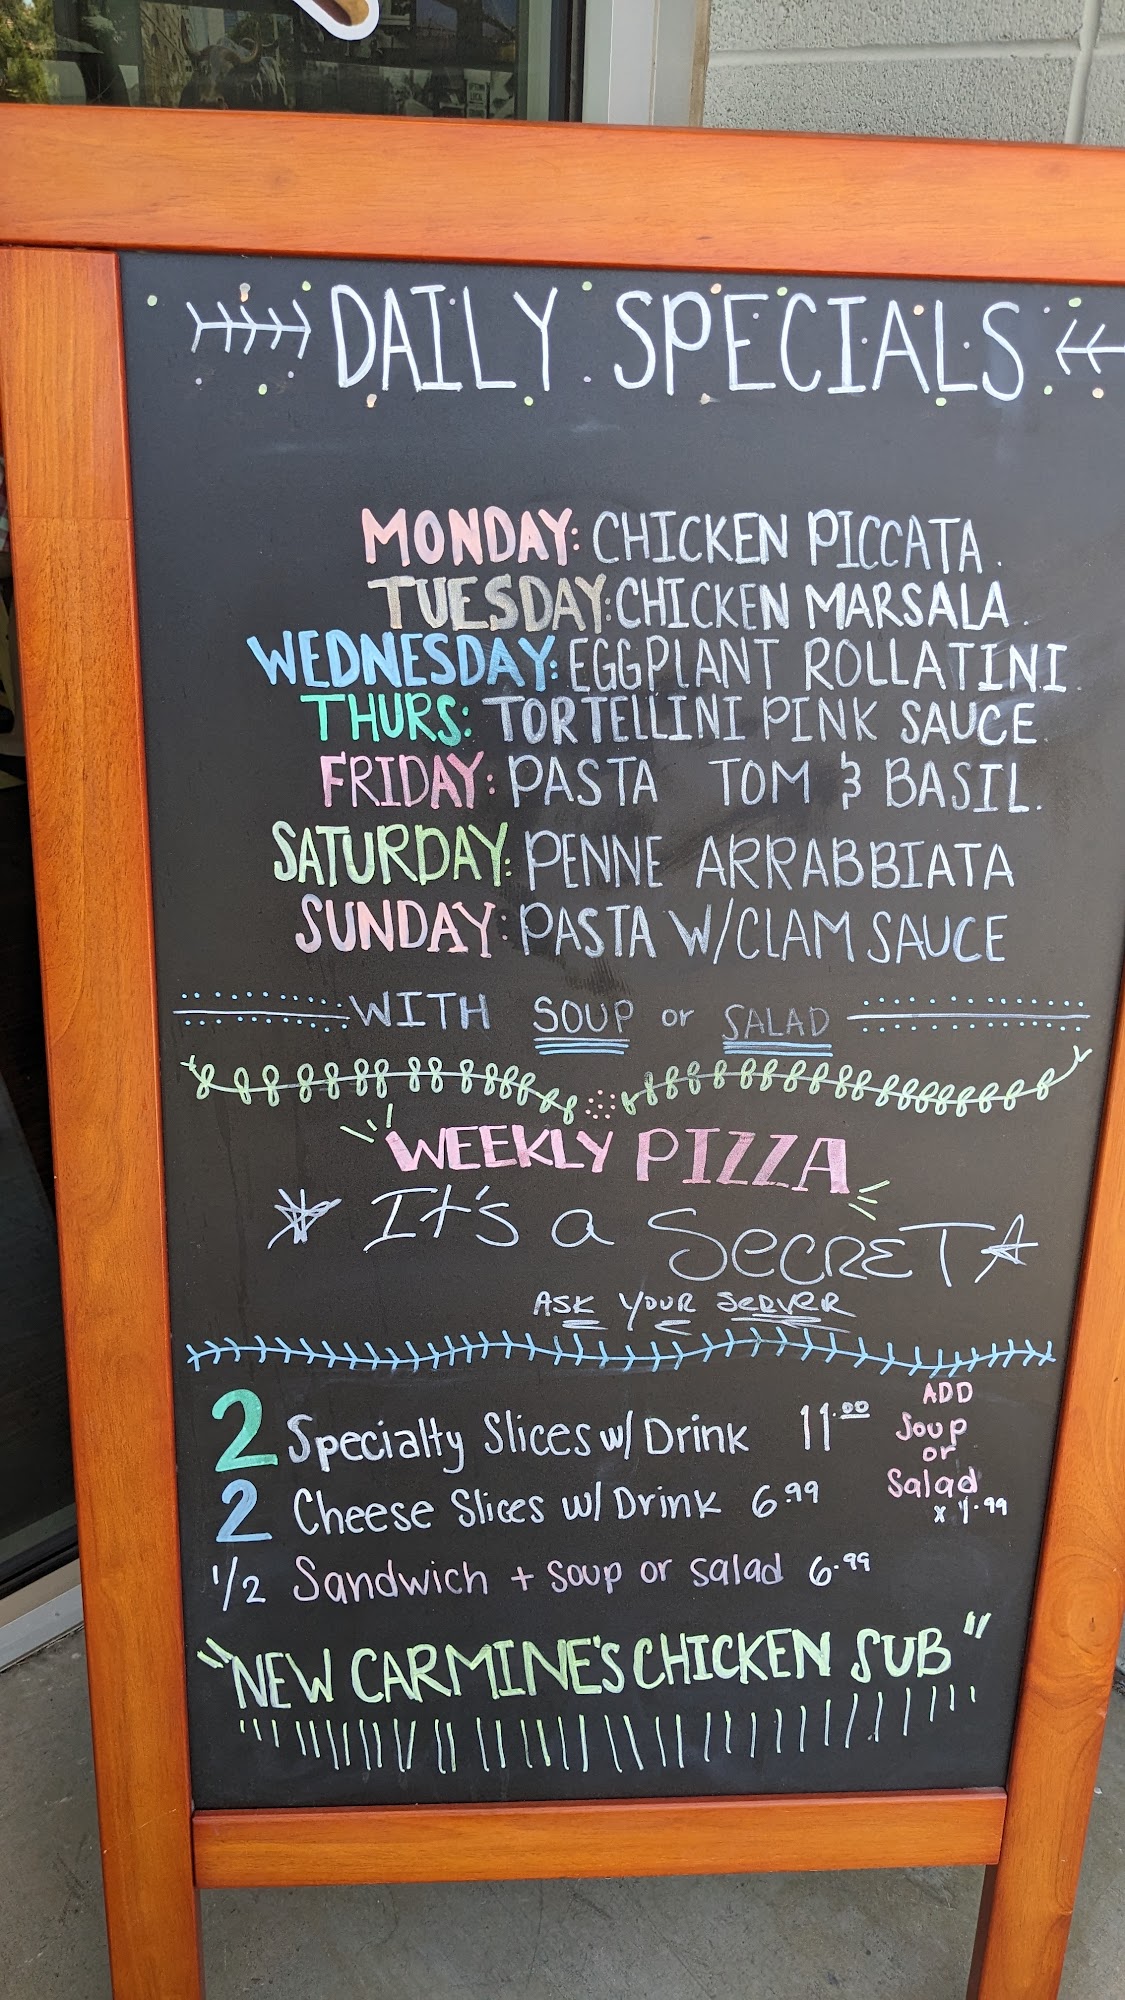 DAILY SPECIALS
MONDAY: CHICKEN PICCATA.
TUESDAY: CHICKEN MARSALA.
WEDNESDAY: EGGPLANT ROLLATINI.
THURS: TORTELLINI PINK SAUCE.
FRIDAY: PASTA TOM & BASIL.
SATURDAY: PENNE ARRABBIATA
SUNDAY: PASTA W/CLAM SAUCE
WITH SOUP or SALAD
WEEKLY PIZZA
It's a SecRET
ASK YOUR SERVER
2 Specialty Slices w/ Drink 11.00
2 Cheese Slices w/ Drink 6.99
ADD
Soup
or
Salad
x 1.99
1/2 Sandwich + soup or salad 6.99
"NEW CARMINE'S CHICKEN SUB"